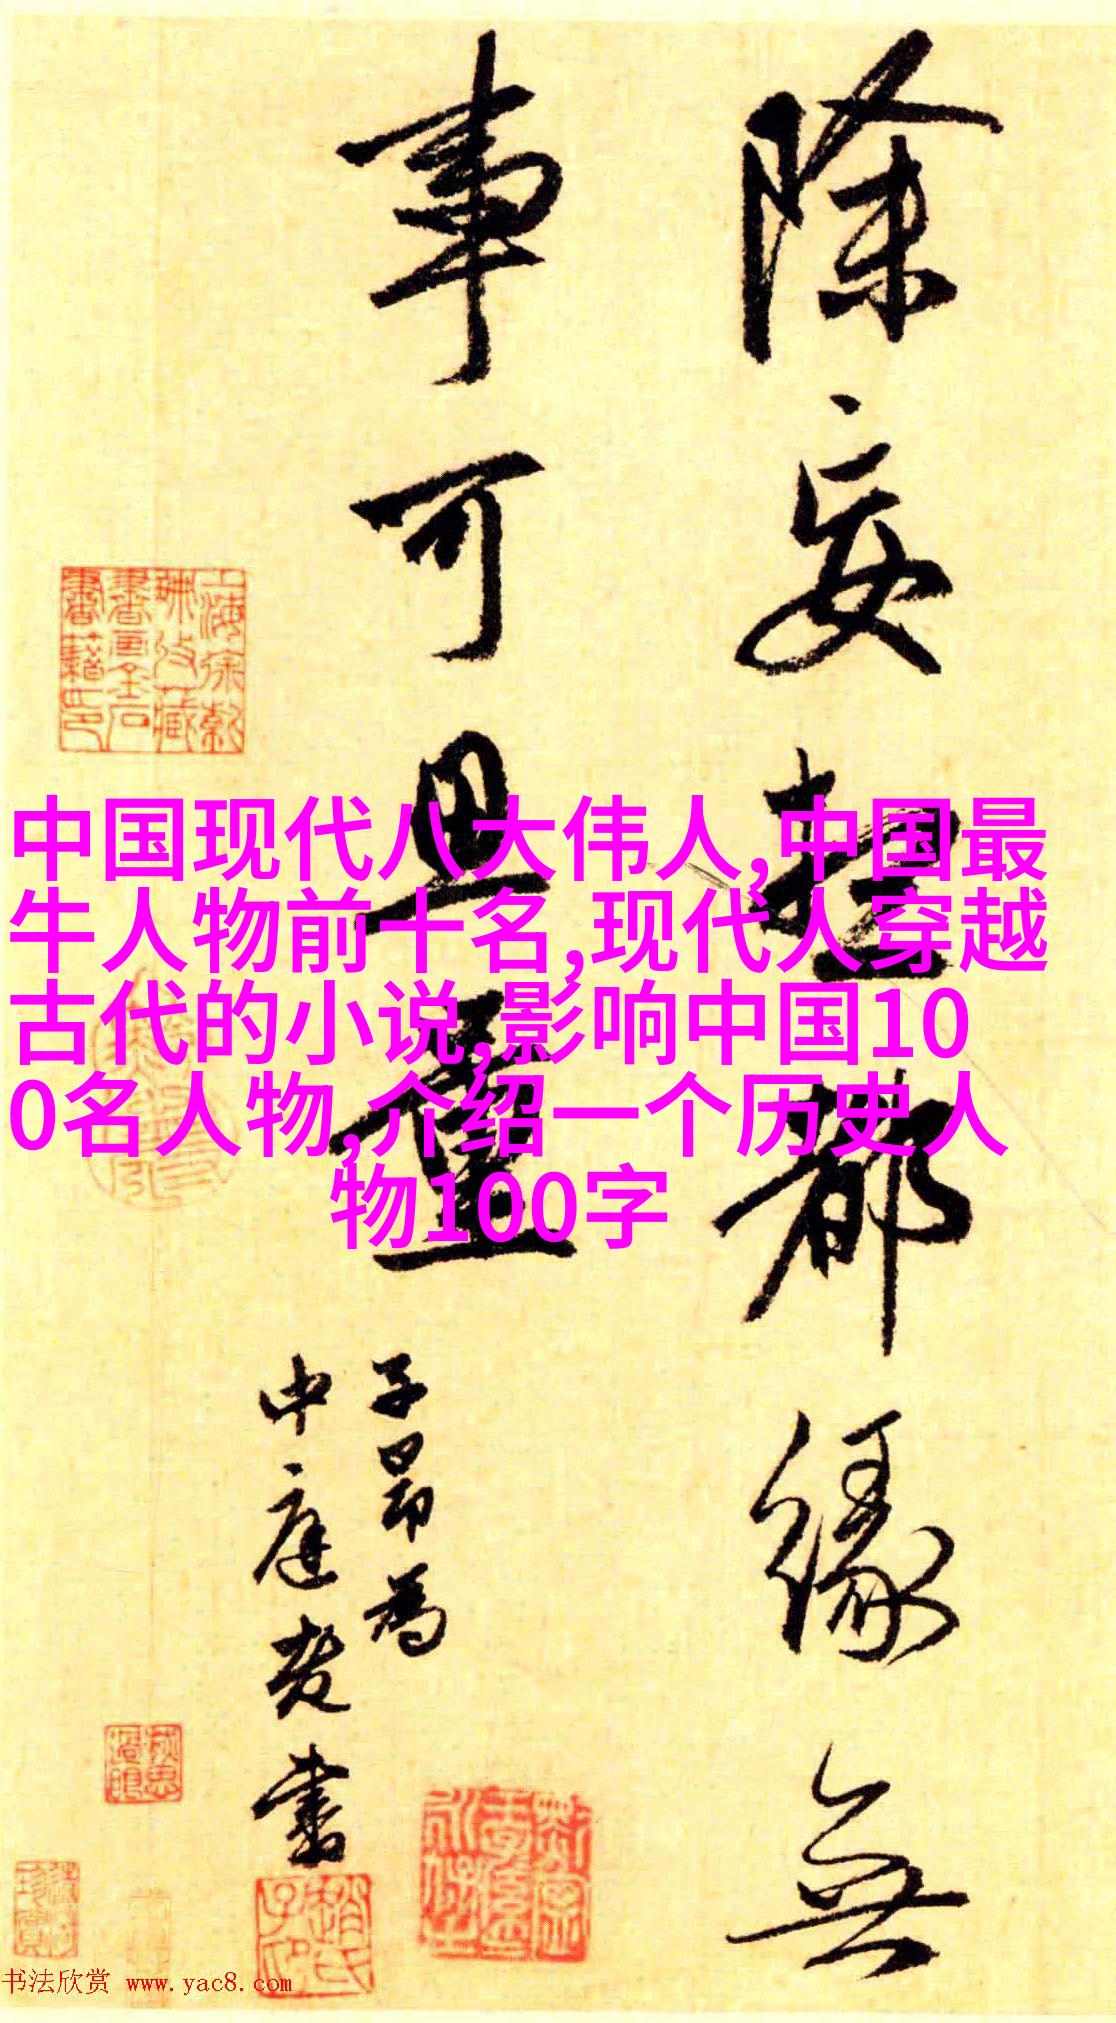 除妄想都緣無
事可思量
子昂為
中庭老書
中国现代八大伟人,中国最
牛人物前十名,现代人穿越
古代的小说,影响中国10
0名人物,介绍一个历史人
物100字
书法欣赏 www.yac8.com